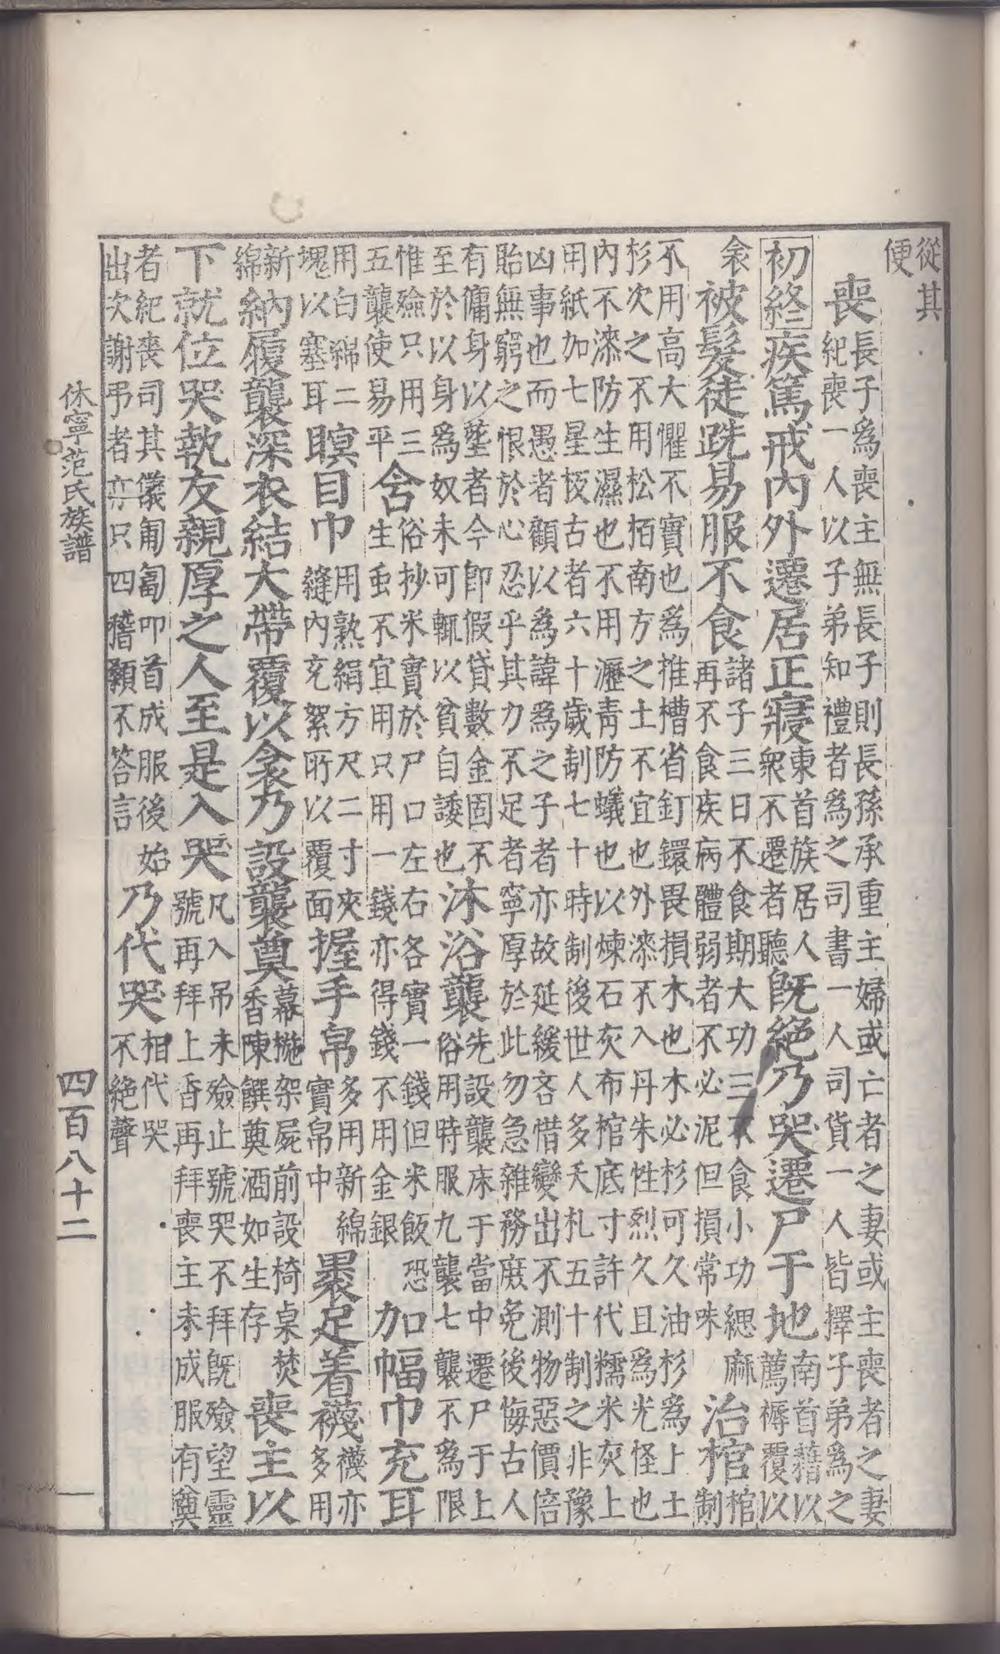 從其
便
喪
長子為喪主無長子則長孫承重主婦或亡者之妻或主喪者之妻
紀喪一人以子弟知禮者為之司書一人司貨一人皆擇子弟為之
初終疾篤戒內外遷居正寢
東首族居人
眾不遷者聽
既絕乃哭遷尸于地
南首藉以
薦褥覆以
衾
被髮徒跣易服不食
諸子三日不食期大功三不食小功緦麻
再不食疾病體弱者不必泥但損常味
治棺
棺
制
不用高大懼不實也為椎槽省釘鐶畏損木也木必杉可久油杉為上土
杉次之不用松栢南方之土不宜也外漆不入丹朱性烈久且為光怪也
內不漆防生濕也不用瀝青防蟻也以煉石灰布棺底寸許代糯米灰上
用紙加七星板古者六十歲制七十時制後世人多夭札五十制之非豫
凶事也而愚者顧以為諱為之子者亦故延緩吝惜變出不測物惡價倍
貽無窮之恨於心忍乎其力不足者寧厚於此勿急雜務庶免後悔古人
有傭身以塟者今即假貸數金固不
至於以身為奴未可輒以貧自諉也
沐浴襲
先設襲床于當中遷尸于上
俗用時服九襲七襲不為限
惟殮只用三
五襲使易平
含
俗抄米實於尸口左右各實一錢但米飯恐
生虫不宜用只用一錢亦得錢不用金銀
加幅巾充耳
用白綿二
塊以塞耳
瞑目巾
用熟絹方尺二寸夾
縫內充絮所以覆面
握手帛
多用新綿
實帛中
裹足着襪
襪亦
多用
新
綿
納履襲深衣結大帶覆以衾乃設襲奠
幕拖架屍前設椅桌焚
香陳饌奠酒如生存
喪主以
下就位哭執友親厚之人至是入哭
凡入吊未殮止號哭不拜既殮望靈
號再拜上香再拜喪主未成服有奠
者紀喪司其儀匍匐叩首成服後始
出次謝弔者亦只四稽顙不答言
乃代哭
相代哭
不絕聲
休寧范氏族譜
四百八十二